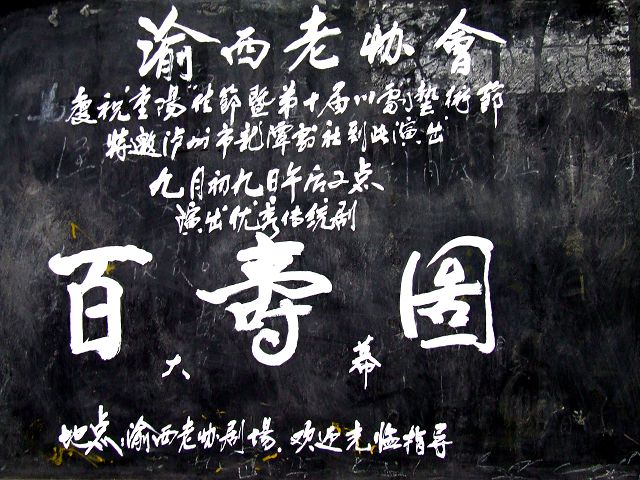 渝西老协會
慶祝重陽佳節暨第十届川劇藝術節
特邀泸州市龙潭剧社到此演出
九月初九日午后2点
演出优秀传统剧
百壽图
大幕
地点:渝西老协剧場.欢迎光临指导